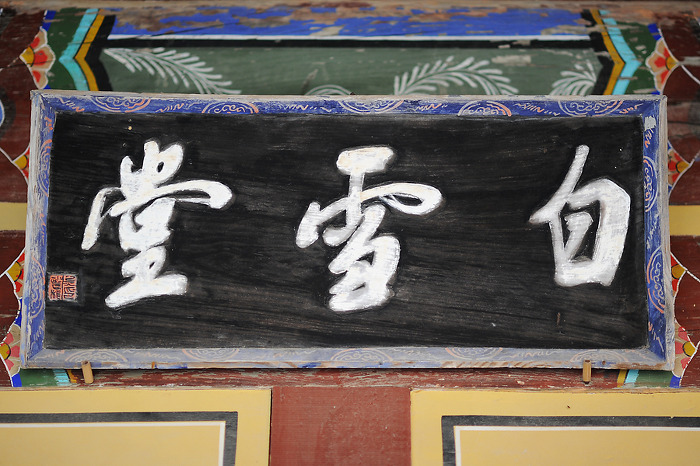 白雪堂